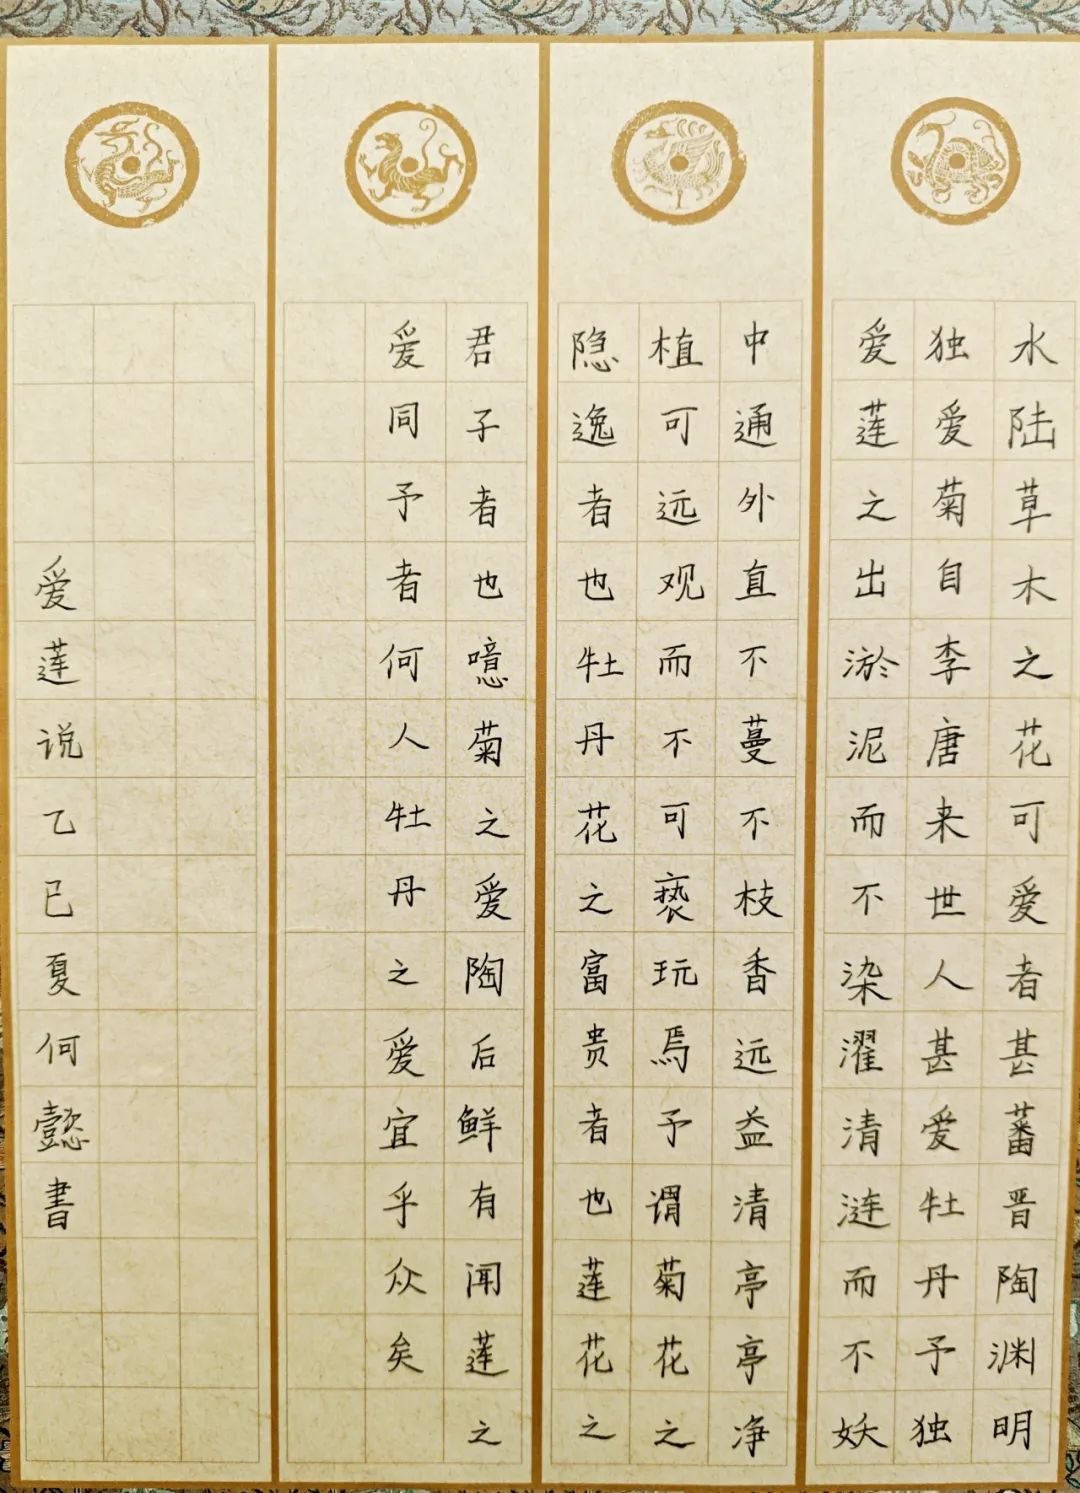 水陆草木之花可爱者甚蕃晋陶渊明
独爱菊自李唐来世人甚爱牡丹予独
爱莲之出淤泥而不染濯清涟而不妖
中通外直不蔓不枝香远益清亭亭净
植可远观而不可亵玩焉予谓菊花之
隐逸者也牡丹花之富贵者也莲花之
君子者也噫菊之爱陶后鲜有闻莲之
爱同予者何人牡丹之爱宜乎众矣
爱莲说乙巳夏何懿书